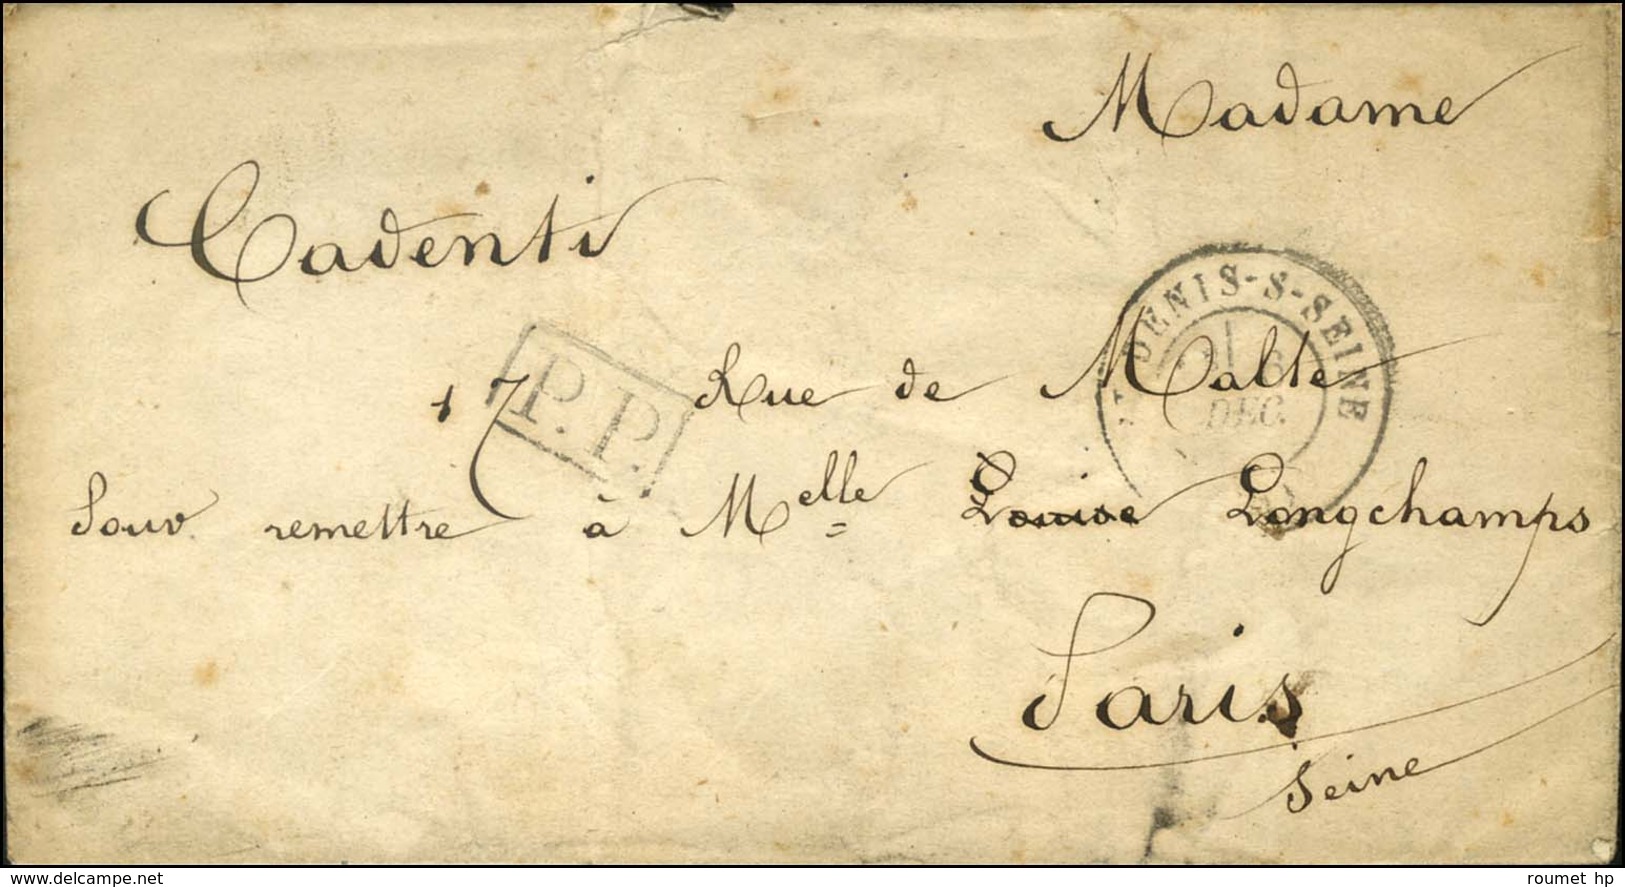 Madame
Cadenti
17 Rue de Malte
P.P.
DENIS-S-SEINE
6
DEC.
Pour remettre à Melle Louise Longchamps
Paris
Seine
www.delcampe.net
roumet hp